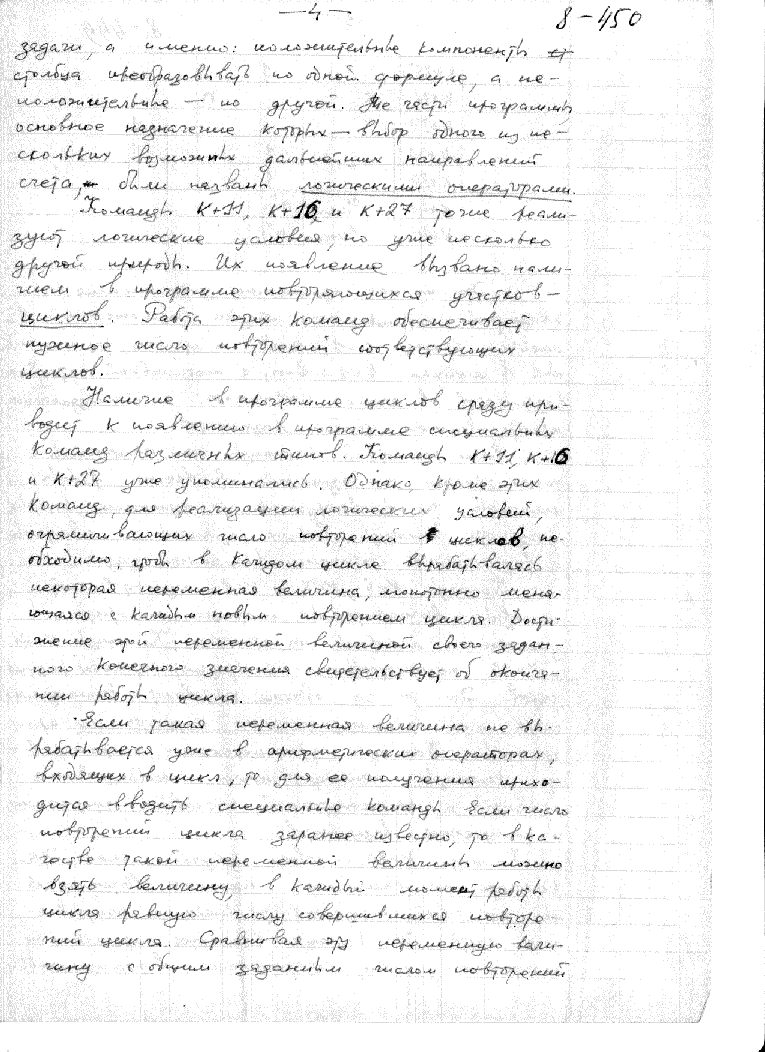 — 4 —
8-450
задачи, а именно: положительные компоненты
столбца преобразовывать по одной формуле, а не-
положительные — по другой. Те части программы
основное назначение которых — выбор одного из не-
скольких возможных дальнейших направлений
счета, были названы логическими операторами.
Команды К+11, К+16, и К+27 тоже реали-
зуют логические условия, но уже несколько
другой природы. Их появление вызвано нали-
чием в программе повторяющихся участков –
циклов. Работа этих команд обеспечивает
нужное число повторений соответствующих
циклов.
Наличие в программе циклов сразу при-
водит к появлению в программе специальных
команд различных типов. Команды К+11, К+16
и К+27 уже упоминались. Однако, кроме этих
команд, для реализации логических условий,
ограничивающих число повторений циклов, не-
обходимо, чтобы в каждом цикле вырабатывалась
некоторая переменная величина, монотонно меня-
ющаяся с каждым новым повторением цикла. Дости-
жение этой переменной величиной своего задан-
ного конечного значения свидетельствует об оконча-
нии работы цикла.
Если такая переменная величина не вы-
рабатывается уже в арифметических операторах,
входящих в цикл, то для ее получения прихо-
дится вводить специальные команды. Если число
повторений цикла заранее известно, то в ка-
честве такой переменной величины можно
взять величину, в каждый момент работы
цикла равную числу совершившихся повторе-
ний цикла. Сравнивая эту переменную вели-
чину с общим заданным числом повторений